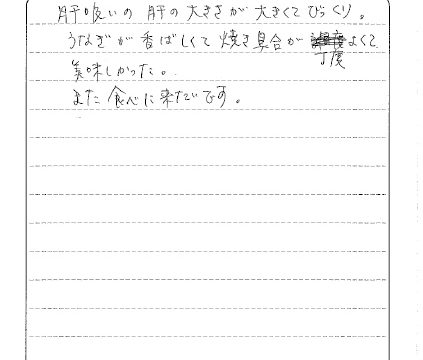 肝吸いの肝の大きさが大きくてびっくり。
うなぎが香ばしくて焼き具合が丁度よくて
美味しかった。
また食べに来たいです。